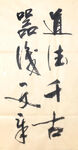 道法千古
器識文章